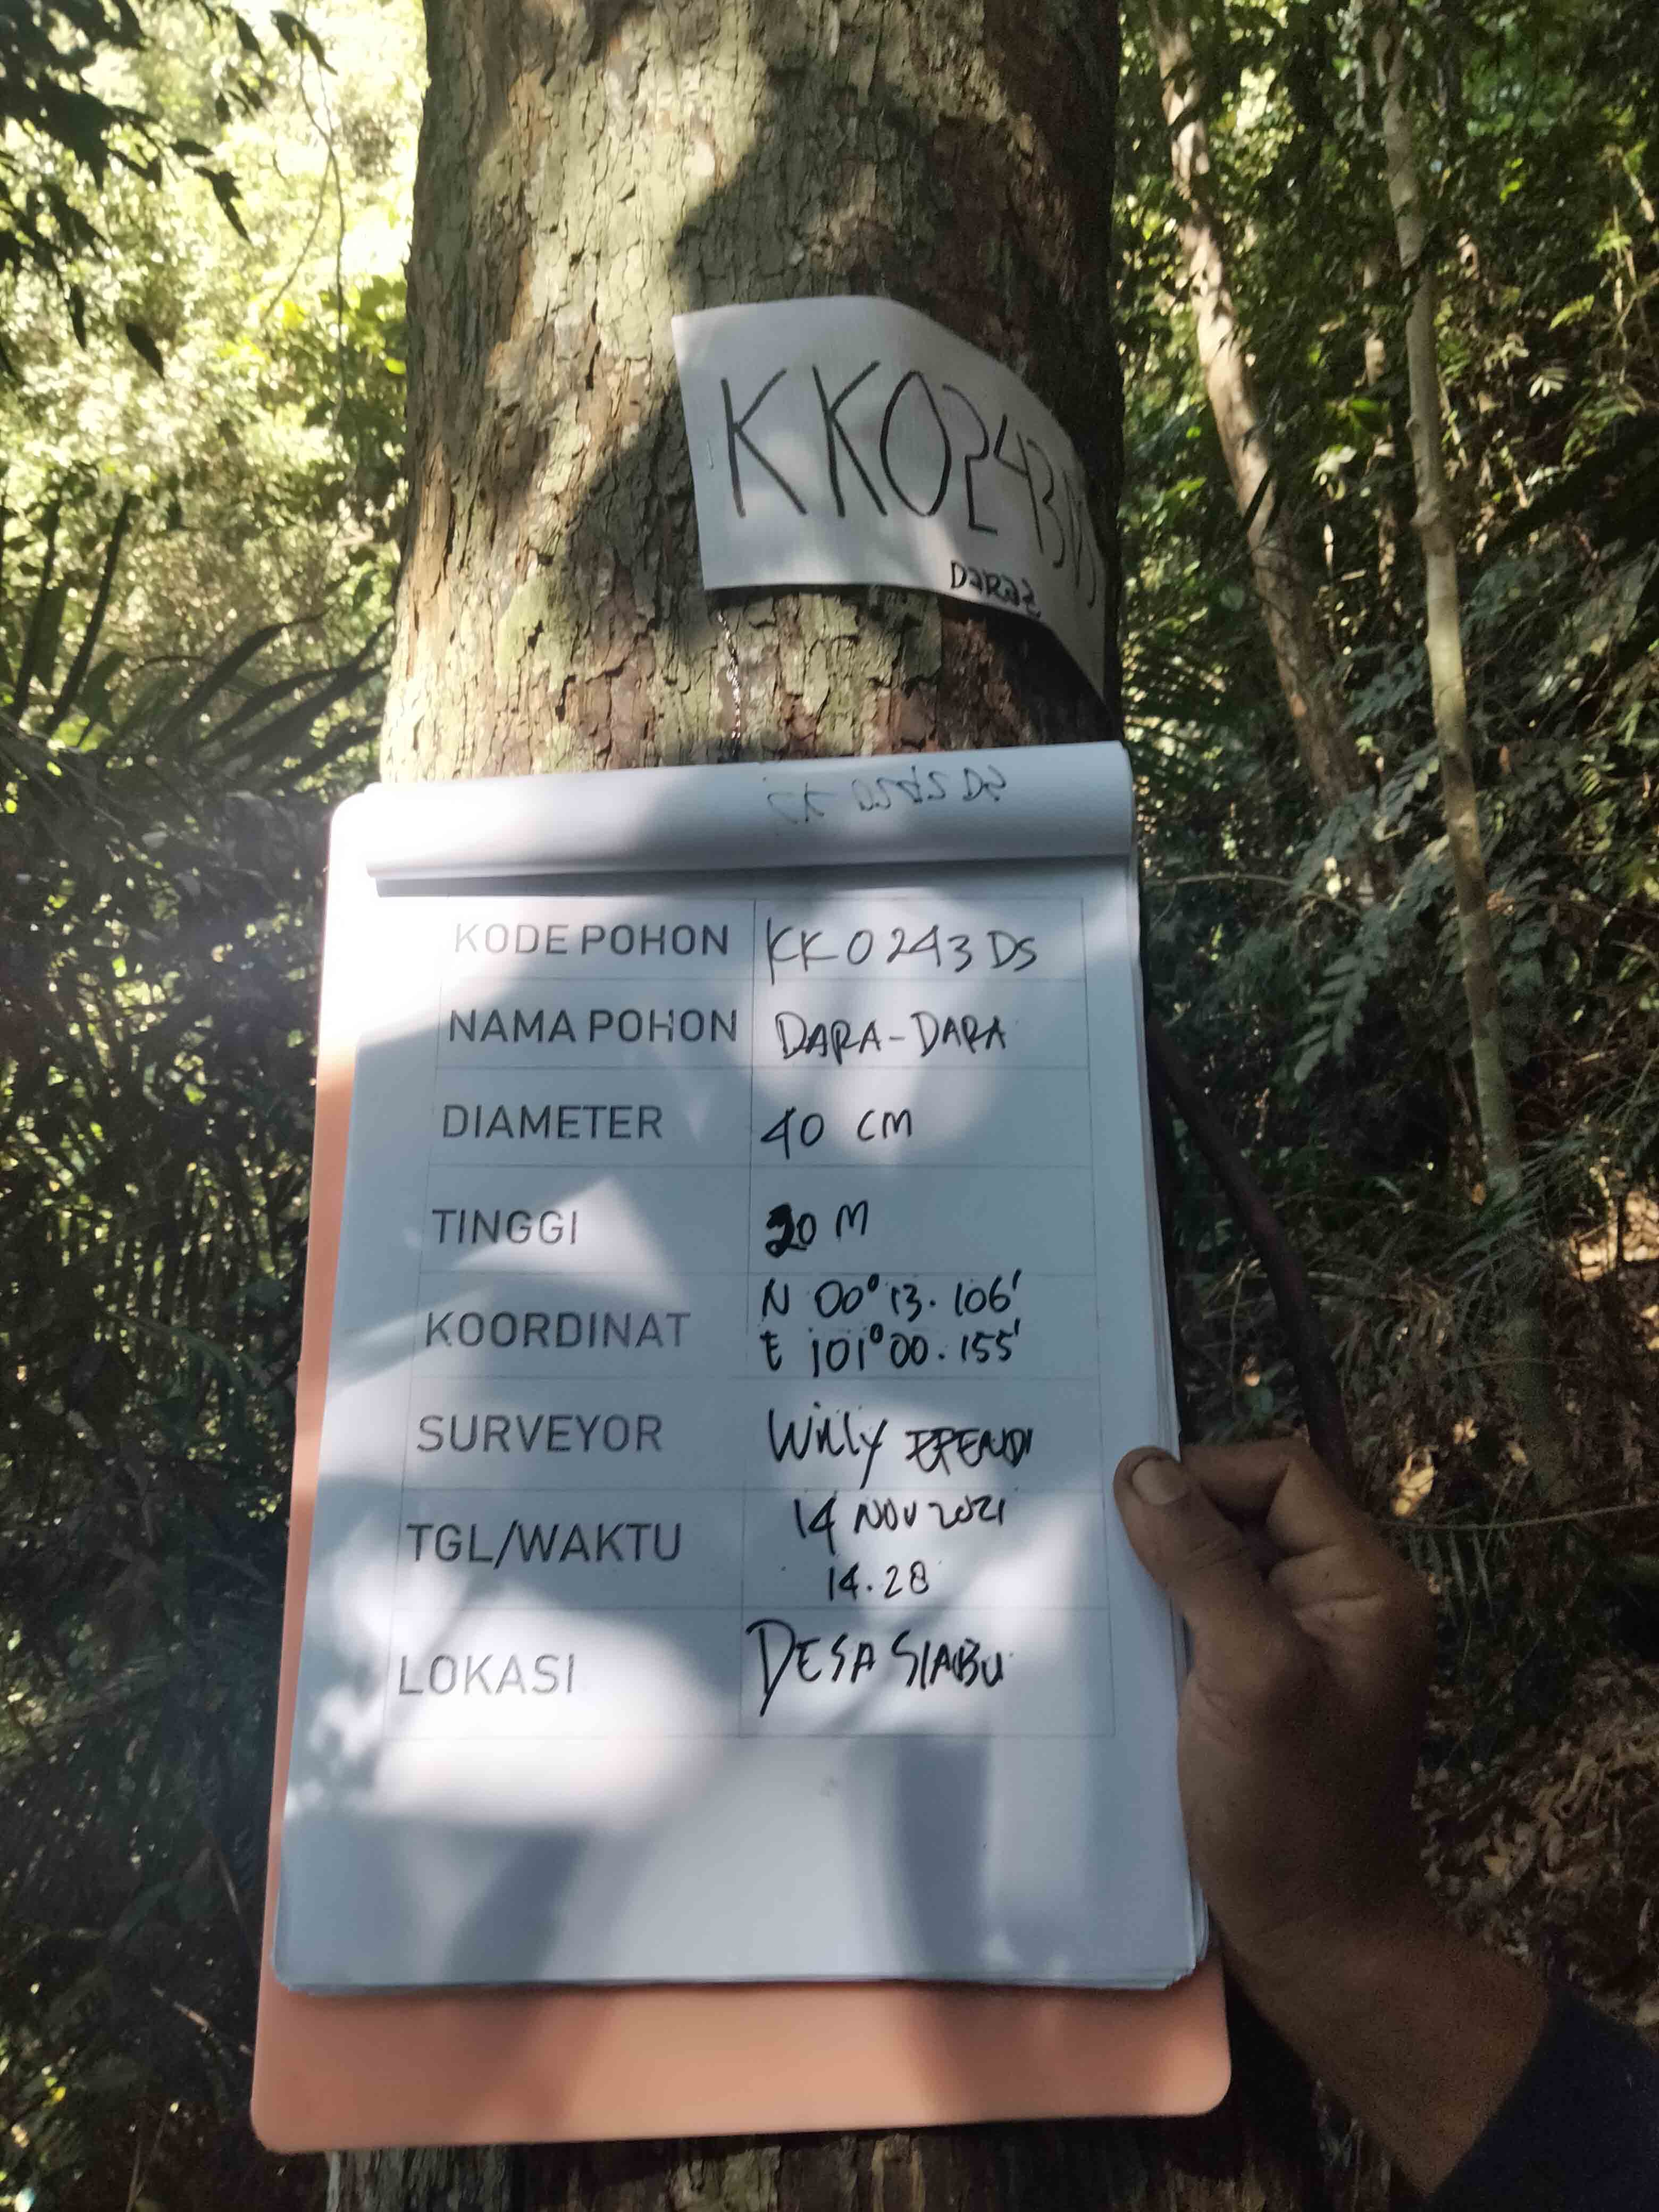 KK0243DS
DARA2
KODE POHON KK0243DS
NAMA POHON DARA-DARA
DIAMETER 40 CM
TINGGI 20 M
KOORDINAT N 00° 13. 106'
E 101° 00. 155'
SURVEYOR Willy EFENDI
TGL/WAKTU 14 NOV 2021
14.28
LOKASI DESA SIABU